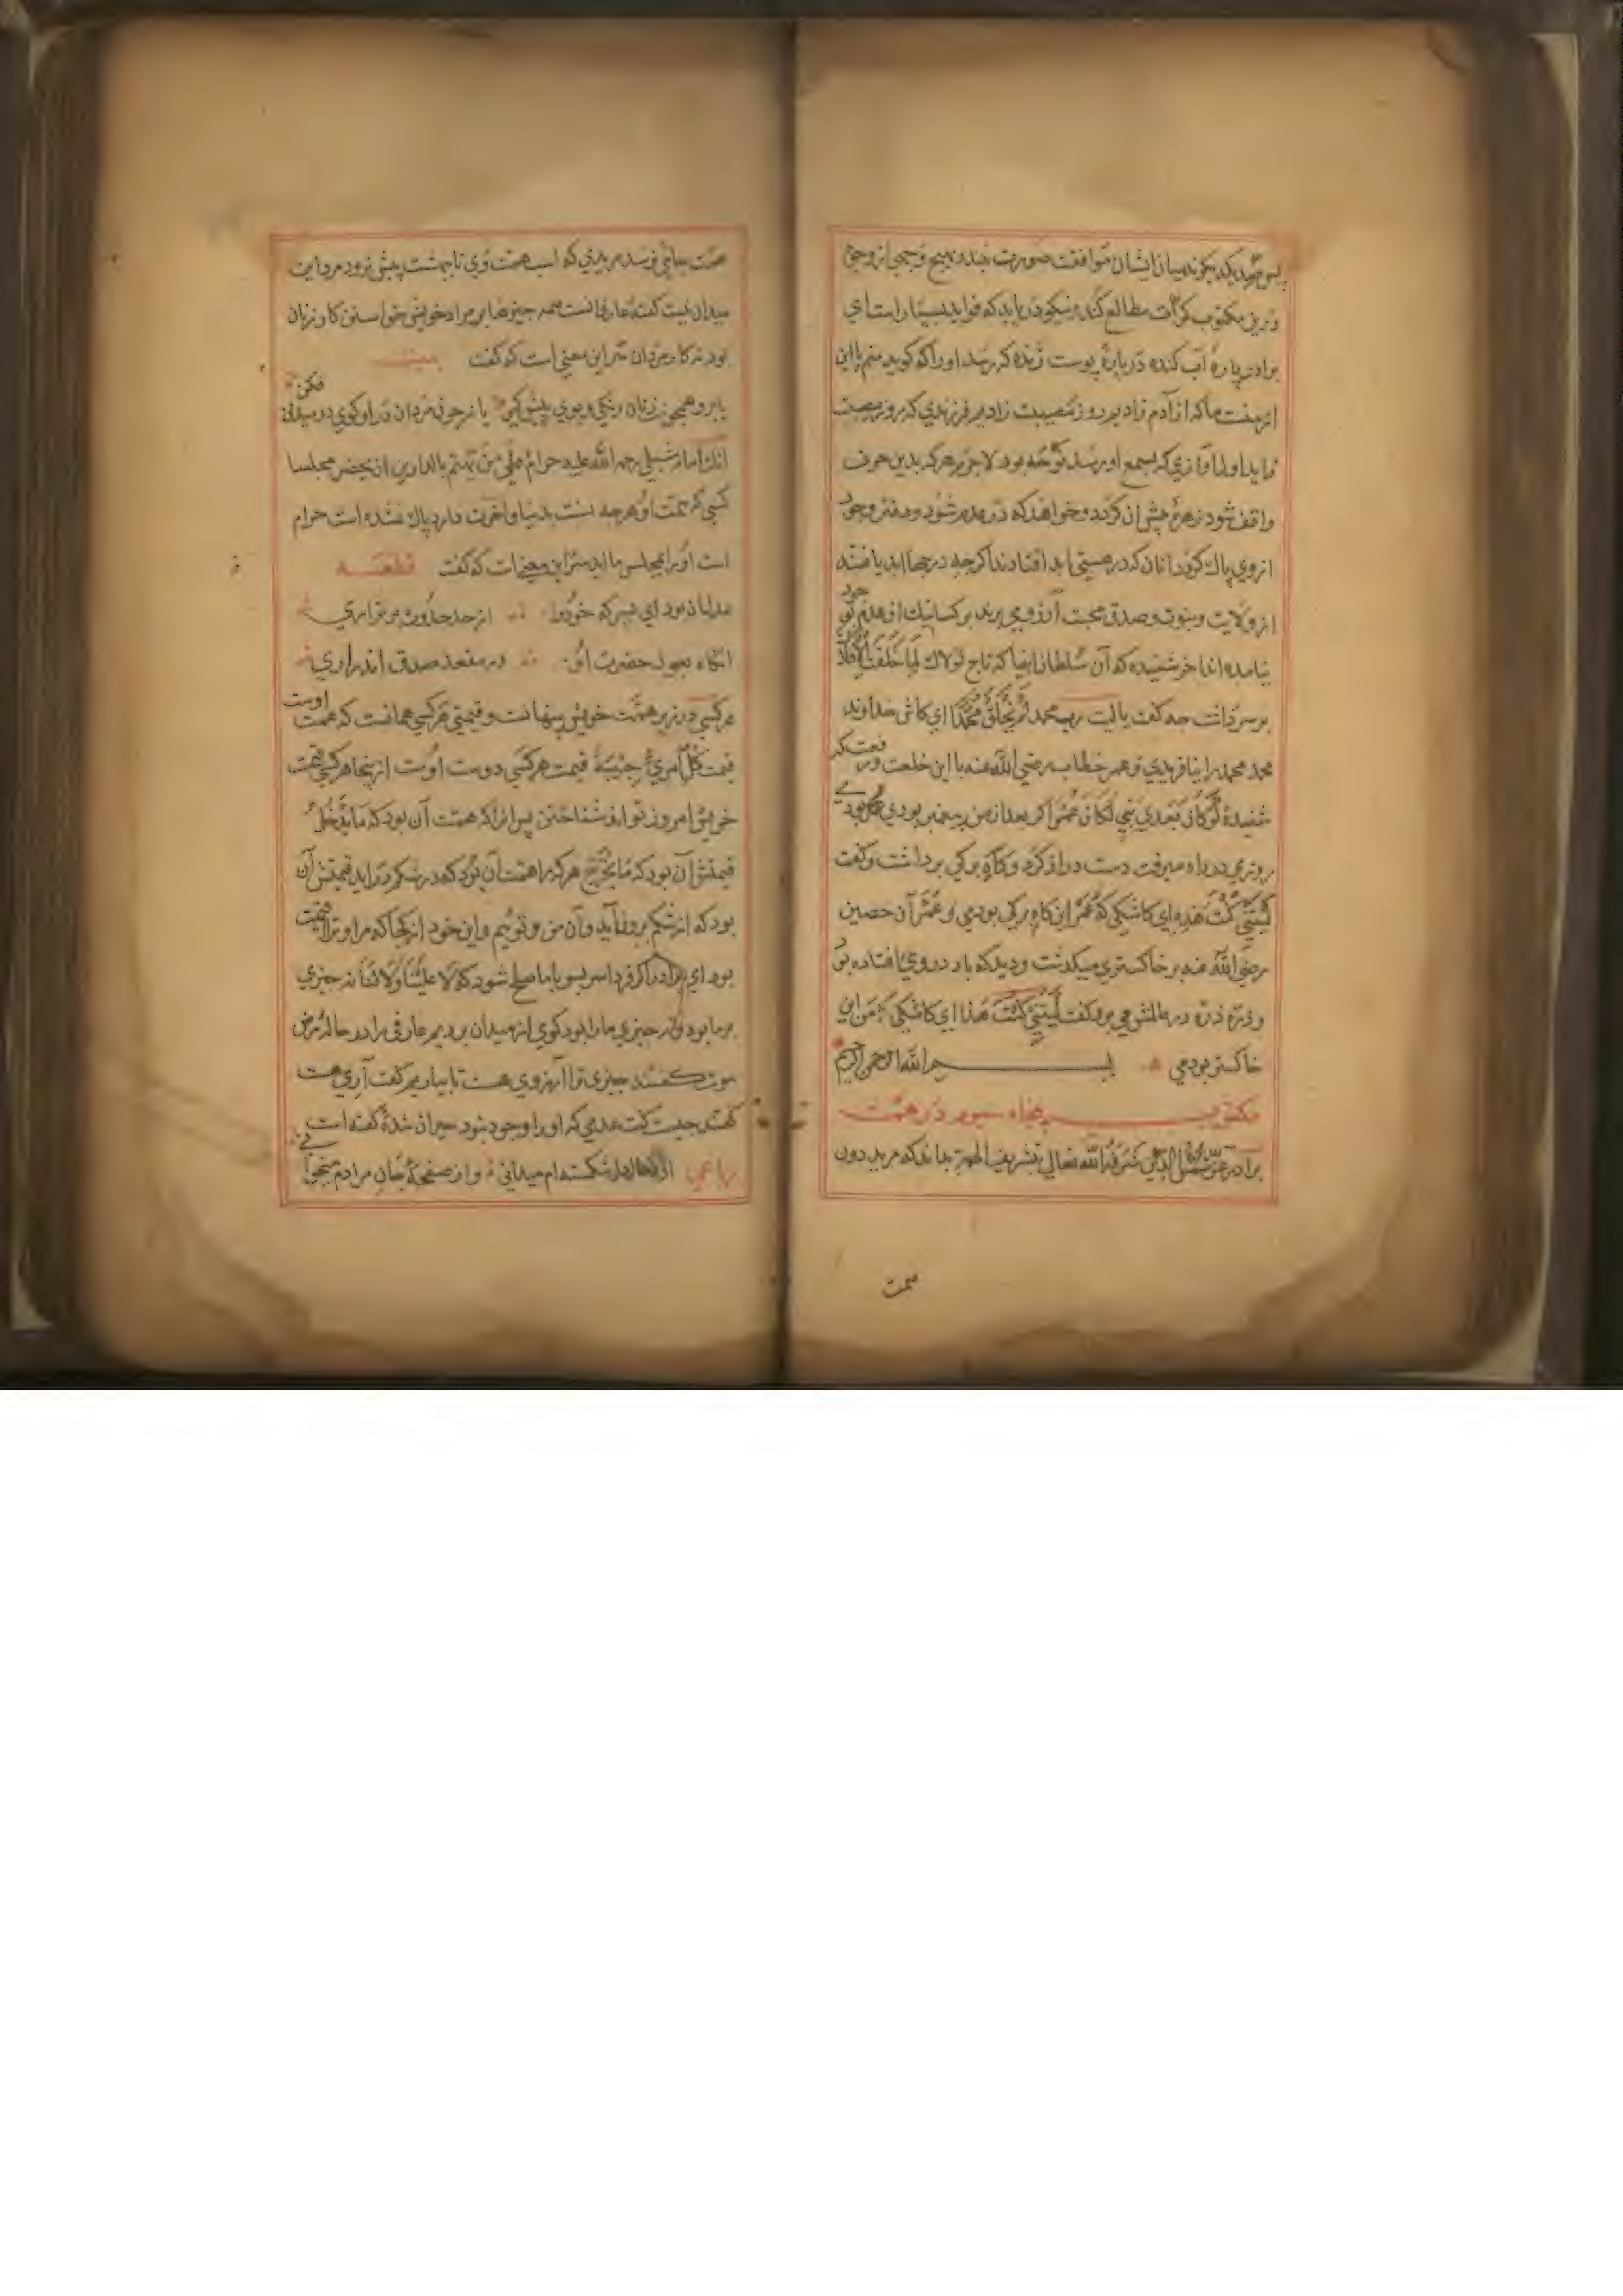 میان ایشان موافقت صورت نبندد بهیچ وجهی از وجوه
درین مکتوب کرات مطالعه کند و نیکو دریابد که فواید بسیار است ای
برادر پارهٔ آب کنده در پارهٔ پوست زنده که رسد او را که کوید منم با این
از آدم زادیم روز مصیبت زادیم فرزندی که بروز مصیبت
زاید اول آوازی که بسمع او رسد نوحه بود لاجرم هرکه بدین حرف
واقف شود زهرهٔ خواهد که در عدم شود و دفتر وجود
از وی پاک کردد آنان که در هستی افتادند اکرچه درجها یافتند
از ولایت و نبوت و صدق محبت آرزو می برند بر کسانیک از عدم خود
نیامده اند آخر شنیدهٔ که آن سلطان انبیا که تاج لولاک لما خلقت الافلاک
بر سر داشت چه کفت یا لیت رب محمد لم یخلق محمدا ای کاش خداوند
محمد محمد را نیافریدی و عمر خطاب رضی الله عنه با این خلعت و رفعت که
شنیدهٔ لو کان بعدی نبی لکان عمر اکر بعد از من پیغمبر بودی عمر بودی
روزی در راه میرفت دست دراز کرد و کاه برکی برداشت و کفت
لیتنی کنت هذه ای کاشکی که عمر این کاه برکی بودی و عمران حصین
رضی الله عنه بر خاکستری میکذشت و دید که باد در وی افتاده بود
و ذره ذره در عالمش می برد کفت لیتنی کنت هذا ای کاشکی که من این
خاکستر بودمی بسم الله الرحمن الرحیم
مکتوب پنجاه سیوم در همت
برادر عزیز شمس الدین شرفه الله تعالی بتشریف الهمة بداند که مرید دون
همت
همت بجائی نرسد مریدی که اسب همت وی تا بهشت پیش نرود مرد این
میدان نیست کفته عارفانست همه چیزها بر مراد خویش خواستن کار زنان
بود نه کار مردان سر این معنی است که کفت بیت
یا برو همچو زنان رنکی و بوی پیش کیر یا چون مردان درا و کوی در میدان فکن
آنک امام شبلی رحمه الله علیه حرام علی من تهتم بالدارین ان یحضر مجلسنا
کسی که همت او هرچه بدنیا و آخرت دارد پاک نشده است حرام
است او را بمجلس ما آید سر این معنی است که کفت قطعه
مردان بود ای پسر که خود را از حد حدوث برتر آری
آنکاه بعون حضرت در مقعد صدق اندر آری
هر کسی در زیر همت خویش پنهانست و قیمت هر کسی همانست که همت اوست
قیمت کل امرئ حبیبه قیمت هر کسی دوست اوست از ینجا هر کسی قیمت
خویش امروز تواند شناختن پس آنرا که همت آن بود که ما یدخل
قیمتش آن بود که ما یخرج هرکه را همت آن بود که در شکم در آید قیمتش آن
بود که از شکم بروفآید و آن من و توئیم و این خود از کجا که مرا و ترا قیمت
بود ای برادر اکر فردا سر بسر با ما صلح شود که لا علینا و لا لنا نه چیزی
بر ما بود و نه چیزی ما را بود کوی از میدان بردیم عارفی را در حالهٔ مرض
موت کفتند چیزی ترا آرزوی هست تا بیاریم کفت آری هست
کفتند چیست کفت عدمی که او را وجود نبود حیران شدهٔ کفته است
رباعی شکسته ام میدانی و از صفحهٔ جان مرادم میخوانی